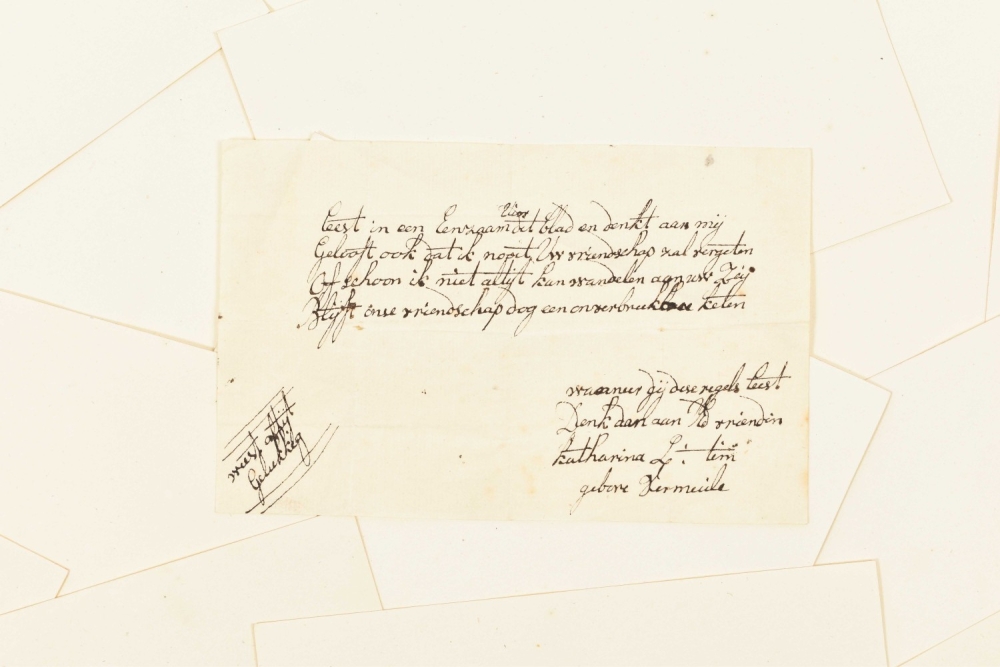 Leest in een Eenzaam Uur dit blad en denkt aan mij
Gelooft ook dat ik nooit Uw vriendschap zal vergeten
Offschoon ik niet altijt kan wandelen aan uw Zeij
Blijft onse vriendschap dog een onverbrukbare keten
waaneer Gij dese regels leest
Denk dan aan Ud vriendin
katharina L:
gebore Vermeule
weest altijt
Gelukkig